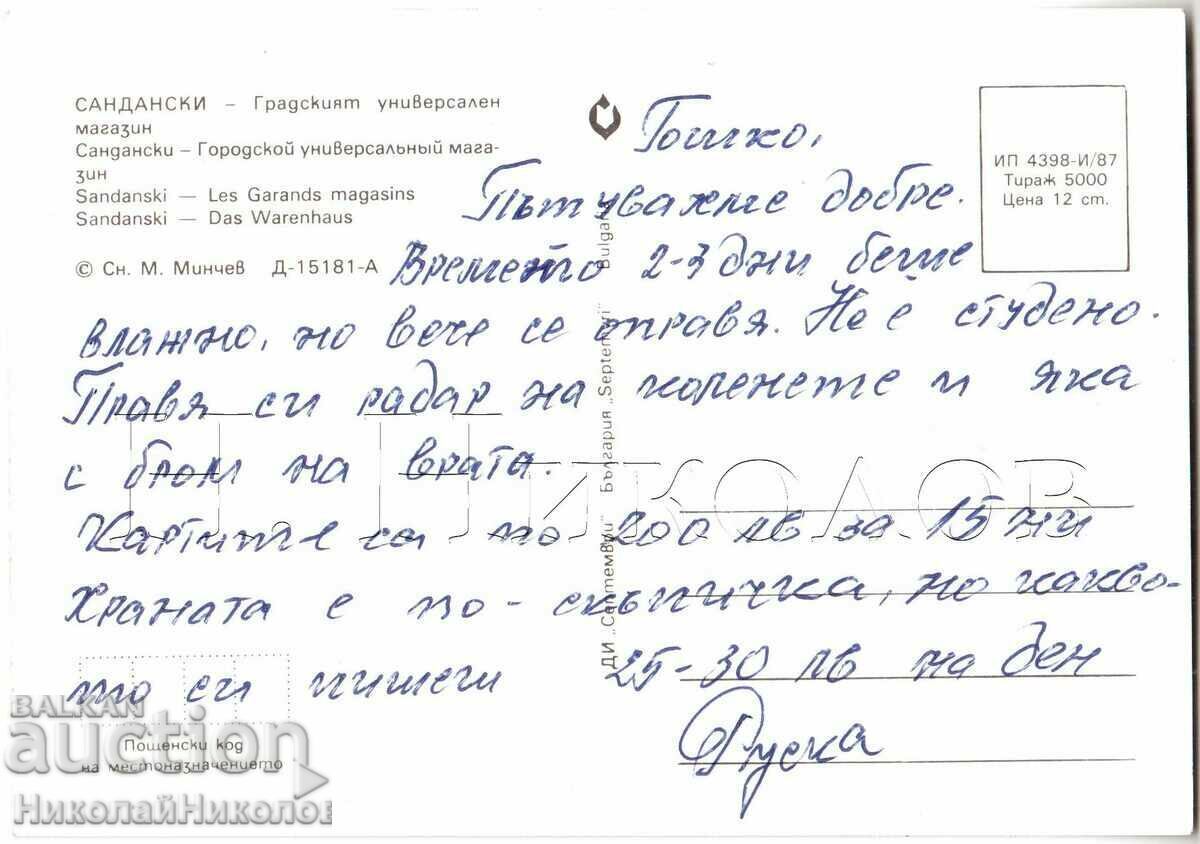 САНДАНСКИ – Градският универсален
магазин
Сандански – Городской универсальный мага-
зин
Sandanski — Les Garands magasins
Sandanski — Das Warenhaus
© Сн. М. Минчев Д-15181-А
ИП 4398-И/87
Тираж 5000
Цена 12 ст.
Гошко,
Пътувахме добре.
Времето 2-3 дни беше
влажно, но вече се оправя. Не е студено.
Правя си радар на коленете и яка
с бром на врата.
Картите са по 200 лв за 15 дни
Храната е по-скъпичка, но какво-
то си пишеш 25-30 лв на ден
Руска
ДИ „Септември" България „Septemvri" Bulgaria
Пощенски код
на местоназначението
П. НИКОЛОВ
BALKAN
auction
НиколайНиколов